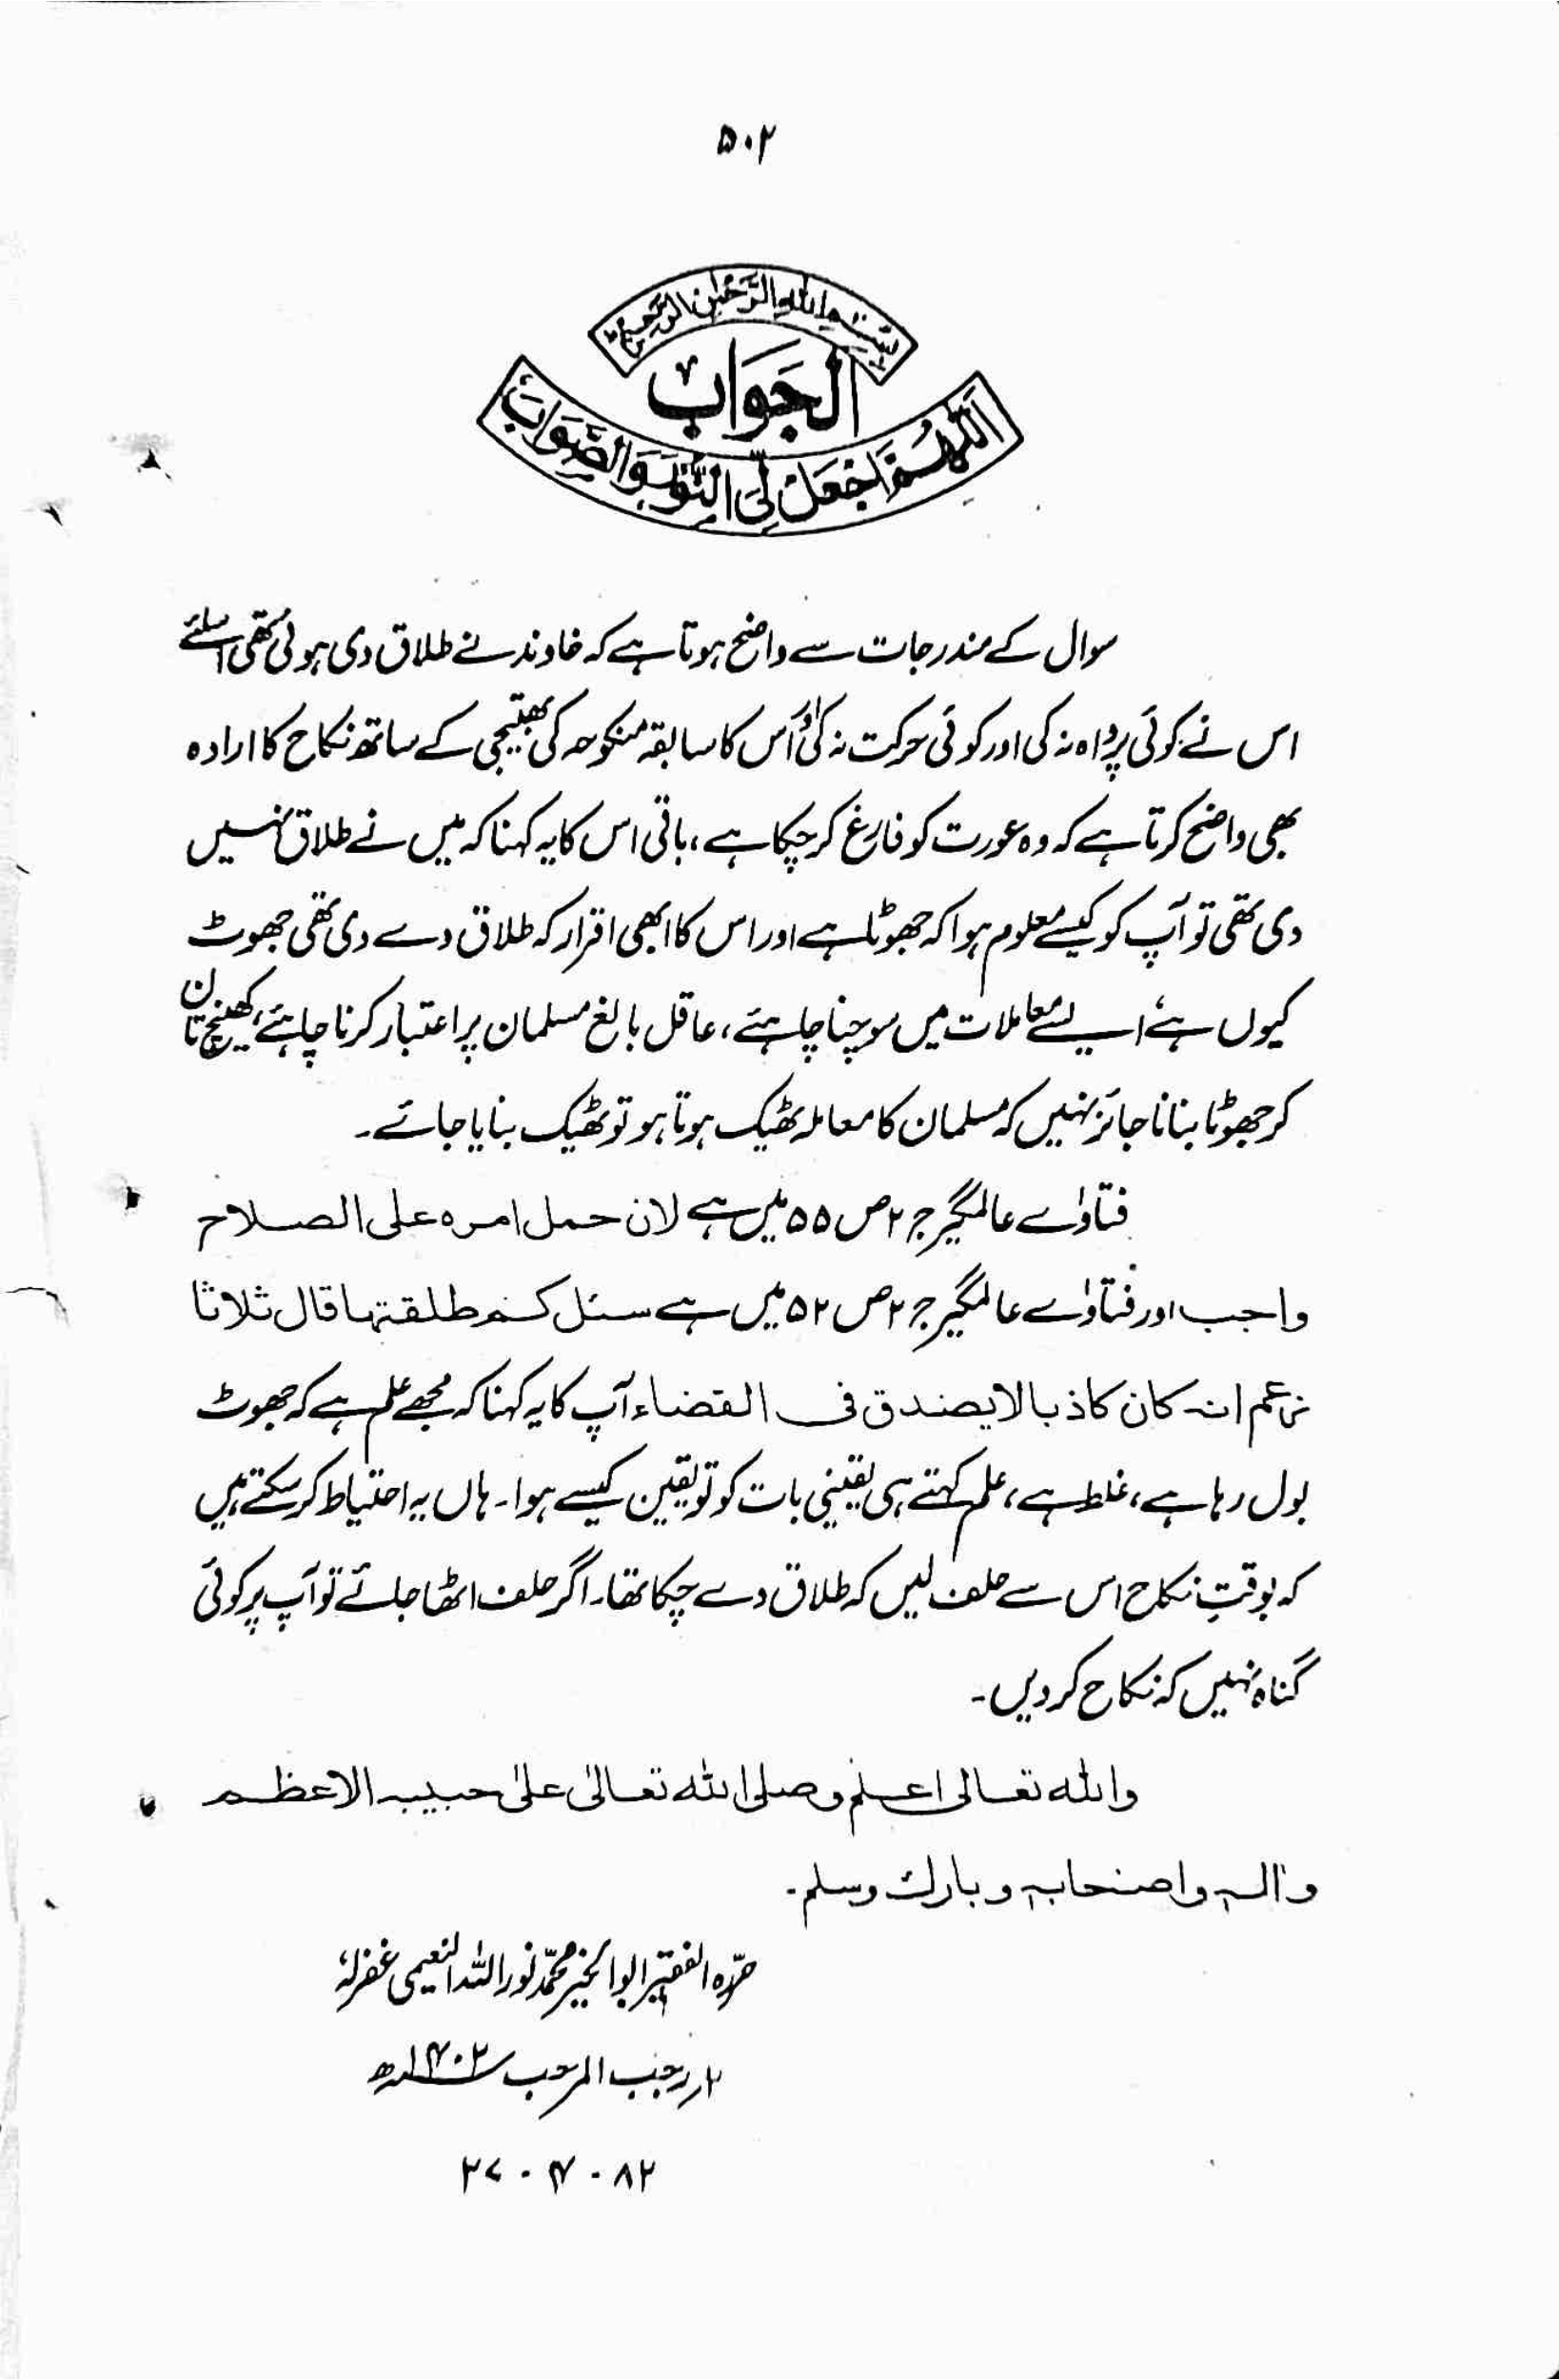 ۵۰۲
بِسْمِ اللهِ الرَّحْمٰنِ الرَّحِيْمِ
الجَوَاب
اَللّٰهُمَّ اجْعَلْ لِّيَ النُّوْرَ وَالصَّوَابَ
سوال کے مندرجات سے واضح ہوتا ہے کہ خاوند نے طلاق دی ہوئی تھی اسلئے
اس نے کوئی پرواہ نہ کی اور کوئی حرکت نہ کی اور اُس کا سابقہ منکوحہ کی بھتیجی کے ساتھ نکاح کا ارادہ
بھی واضح کرتا ہے کہ وہ عورت کو فارغ کر چکا ہے، باقی اس کا یہ کہنا کہ میں نے طلاق نہیں
دی تھی تو آپ کو کیسے معلوم ہوا کہ جھوٹا ہے اور اس کا ابھی اقرار کہ طلاق دے دی تھی جھوٹ
کیوں ہے؛ ایسے معاملات میں سوچنا چاہئے، عاقل بالغ مسلمان پر اعتبار کرنا چاہئے، کھینچ تان
کر جھوٹا بنانا جائز نہیں کہ مسلمان کا معاملہ ٹھیک ہوتا ہو تو ٹھیک بنایا جائے۔
فتاوٰے عالمگیر ج ۲ ص ۵۵ میں ہے لان حمل امره على الصلاح
واجب اور فتاوٰے عالمگیر ج ۲ ص ۵۲ میں ہے سئل كم طلقتها قال ثلاثا
زعم انه كان كاذبا لا يصدق في القضاء آپ کا یہ کہنا کہ مجھے علم ہے کہ جھوٹ
بول رہا ہے، غلط ہے، علم کہتے ہی یقینی بات کو تو یقین کیسے ہوا۔ ہاں یہ احتیاط کر سکتے ہیں
کہ بوقتِ نکاح اس سے حلف لیں کہ طلاق دے چکا تھا۔ اگر حلف اٹھا جائے تو آپ پر کوئی
گناہ نہیں کہ نکاح کر دیں۔
والله تعالى اعلم وصلى الله تعالىٰ علىٰ حبيبه الاعظم
وٰاله واصحابه وبارك وسلم۔
حرّرہ الفقیر ابو الخیر محمّد نور اللہ النعیمی غفرلہٗ
۲؍ رجب المرجب ۱۴۰۲ھ
۲۷ - ۴ - ۸۲